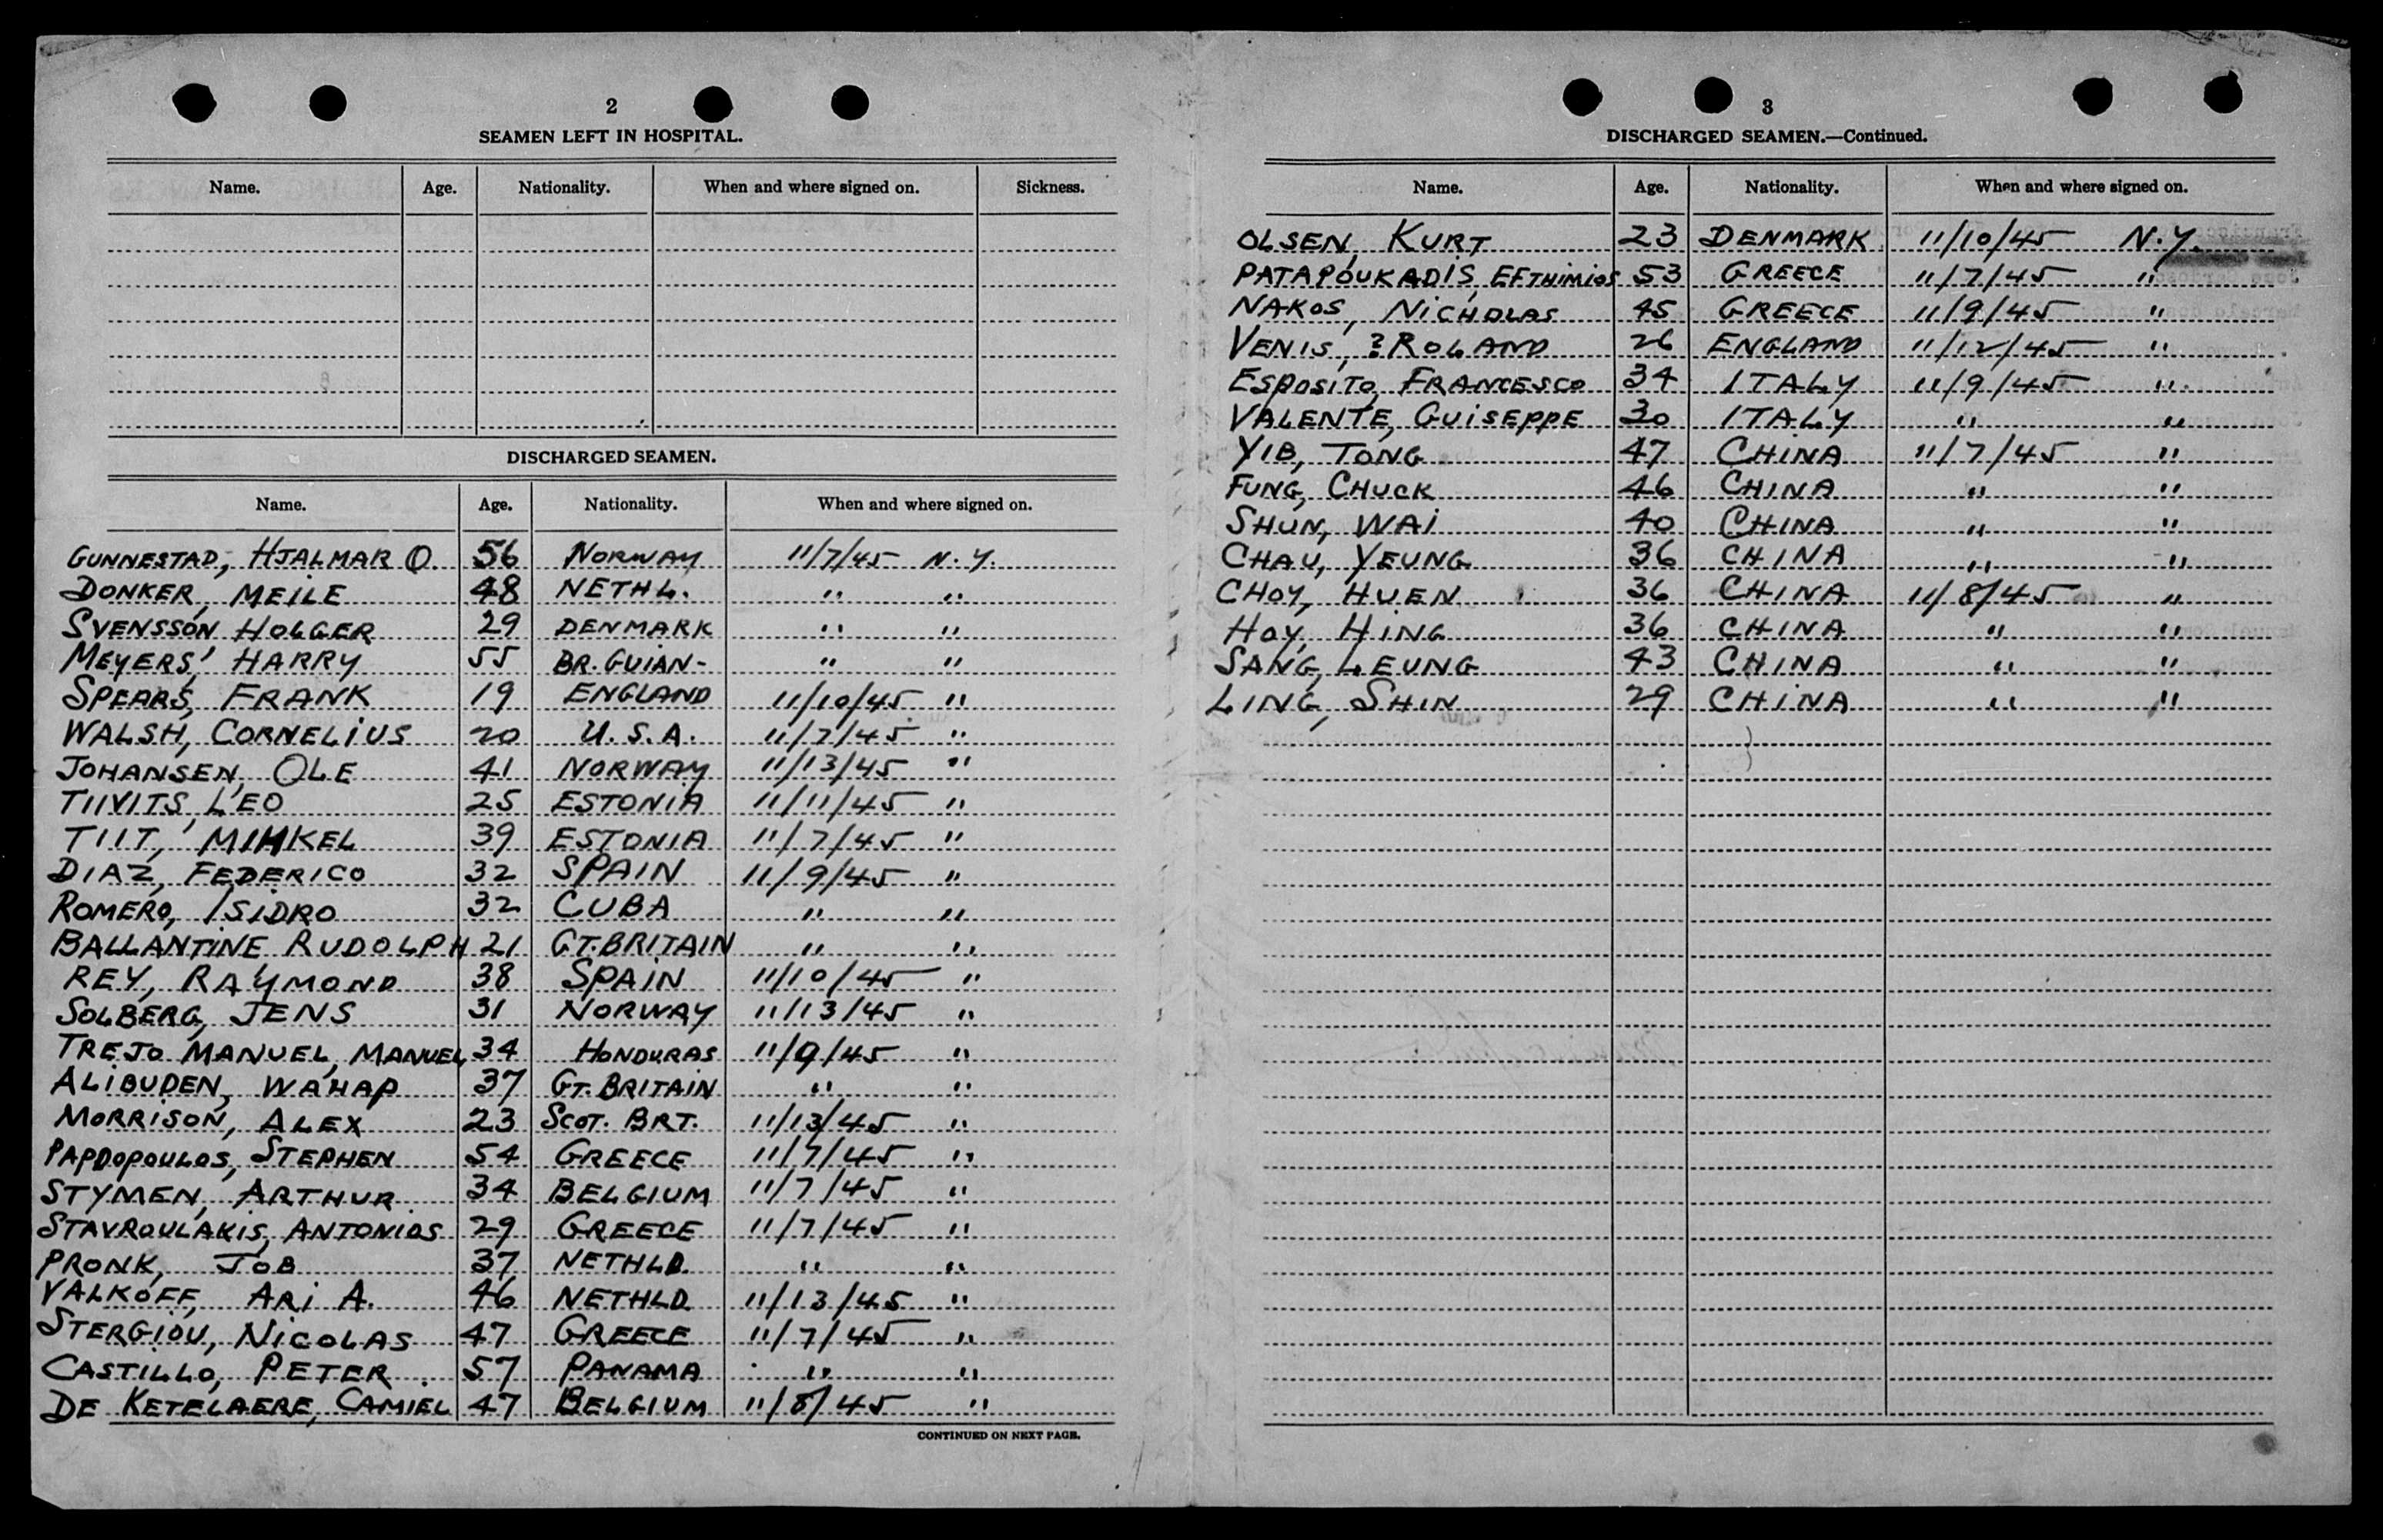 2
SEAMEN LEFT IN HOSPITAL.
Name. Age. Nationality. When and where signed on. Sickness.
DISCHARGED SEAMEN.
Name. Age. Nationality. When and where signed on.
GUNNESTAD, HJALMAR O. 56 NORWAY 11/7/45 N.Y.
DONKER, MEILE 48 NETHL. " "
SVENSSON HOLGER 29 DENMARK " "
MEYERS, HARRY 55 BR. GUIAN- " "
SPEARS, FRANK 19 ENGLAND 11/10/45 "
WALSH, CORNELIUS 20 U.S.A. 11/7/45 "
JOHANSEN, OLE 41 NORWAY 11/13/45 "
TIIVITS, LEO 25 ESTONIA 11/11/45 "
TIIT, MIHKEL 39 ESTONIA 11/7/45 "
DIAZ, FEDERICO 32 SPAIN 11/9/45 "
ROMERO, ISIDRO 32 CUBA " "
BALLANTINE RUDOLPH 21 GT. BRITAIN " "
REY, RAYMOND 38 SPAIN 11/10/45 "
SOLBERG, JENS 31 NORWAY 11/13/45 "
TREJO MANUEL, MANUEL 34 HONDURAS 11/9/45 "
ALIBUDEN, WAHAP 37 GT. BRITAIN " "
MORRISON, ALEX 23 SCOT. BRT. 11/13/45 "
PAPDOPOULOS, STEPHEN 54 GREECE 11/7/45 "
STYMEN, ARTHUR 34 BELGIUM 11/7/45 "
STAVROULAKIS, ANTONIOS 29 GREECE 11/7/45 "
PRONK, JOB 37 NETHLD. " "
VALKOFF, ARI A. 46 NETHLD 11/13/45 "
STERGIOU, NICOLAS 47 GREECE 11/7/45 "
CASTILLO, PETER 57 PANAMA " "
DE KETELAERE, CAMIEL 47 BELGIUM 11/8/45 "
CONTINUED ON NEXT PAGE.
3
DISCHARGED SEAMEN.—Continued.
Name. Age. Nationality. When and where signed on.
OLSEN, KURT 23 DENMARK 11/10/45 N.Y.
PATAPOUKADIS, EFTHIMIOS 53 GREECE 11/7/45 "
NAKOS, NICHOLAS 45 GREECE 11/9/45 "
VENIS, ? ROLAND 26 ENGLAND 11/12/45 "
ESPOSITO, FRANCESCO 34 ITALY 11/9/45 "
VALENTE, GUISEPPE 30 ITALY " "
YIB, TONG 47 CHINA 11/7/45 "
FUNG, CHUCK 46 CHINA " "
SHUN, WAI 40 CHINA " "
CHAU, YEUNG 36 CHINA " "
CHOY, HUEN 36 CHINA 11/8/45 "
HOY, HING 36 CHINA " "
SANG, LEUNG 43 CHINA " "
LING, SHIN 29 CHINA " "